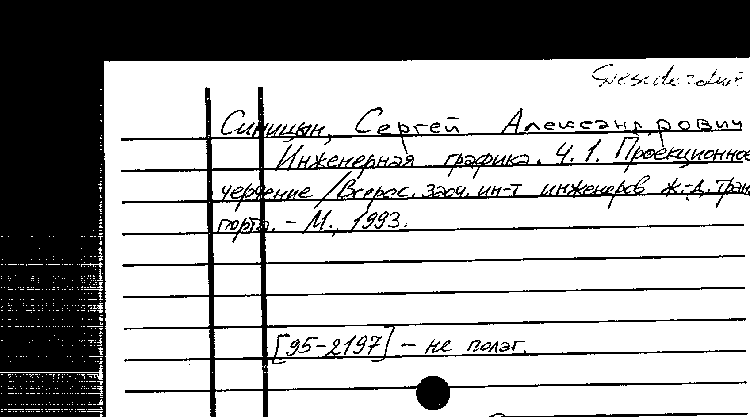 Синицын, Сергей Александрович
Инженерная графика. Ч. 1. Проекционное
черчение / Всерос. заоч. ин-т инженеров ж.-д. тран
порта. – М., 1993.
[95-2197] – не полаг.